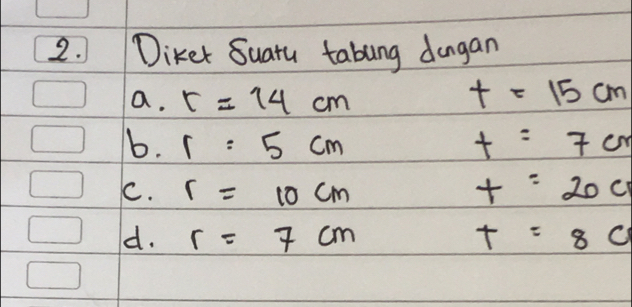 2. Diket Suatu tabung dengan
a. r = 14 cm t = 15 cm
b. r = 5 cm t = 7 cm
c. r = 10 cm t = 20 c
d. r = 7 cm t = 8 c